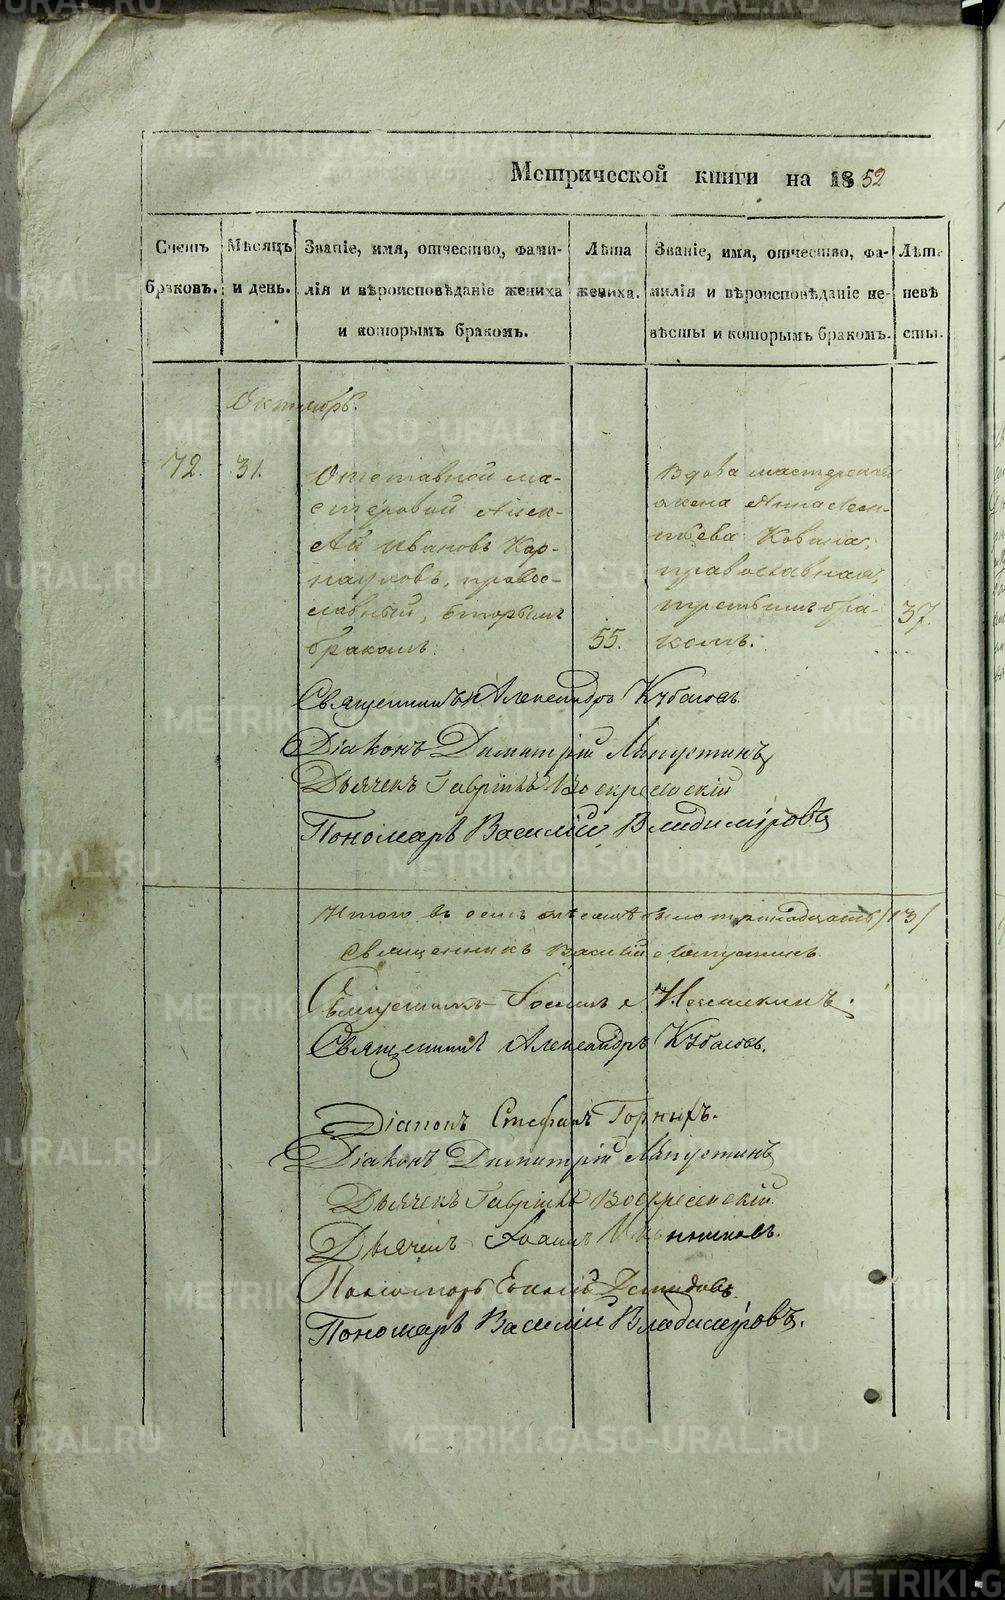 Метрической книги на 1852
Счетъ браковъ.
Мѣсяцъ и день.
Званіе, имя, отчество, фами-
лія и вѣроисповѣданіе жениха
и которымъ бракомъ.
Лѣта жениха.
Званіе, имя, отчество, фа-
милія и вѣроисповѣданіе не-
вѣсты и которымъ бракомъ.
Лѣта невѣсты.
Октябрь.
72.
31.
Отставной ма-
стеровой Алек-
сѣй Ивановъ Кар-
науховъ, право-
славный, вторымъ
бракомъ.
55.
Вдова мастерская
жена Анна Леон-
тьева
православная,
третьимъ бра-
комъ.
37.
Священникъ Александръ Кубасовъ.
Діаконъ Димитрій Ляпустинъ
Дьячекъ Гавріилъ Воскресенскій
Пономарь Василій Владиміровъ
Итого въ семъ мѣсяцѣ было тринадцать /13/
Священникъ Василій Ляпустинъ.
Священникъ
Священникъ Александръ Кубасовъ.
Діаконъ Стефанъ Горныхъ.
Діаконъ Димитрій Ляпустинъ
Дьячекъ Гавріилъ Воскресенскій.
Дьячекъ Іоаннъ
Пономарь Демидовъ.
Пономарь Василій Владиміровъ.
METRIKI.GASO-URAL.RU